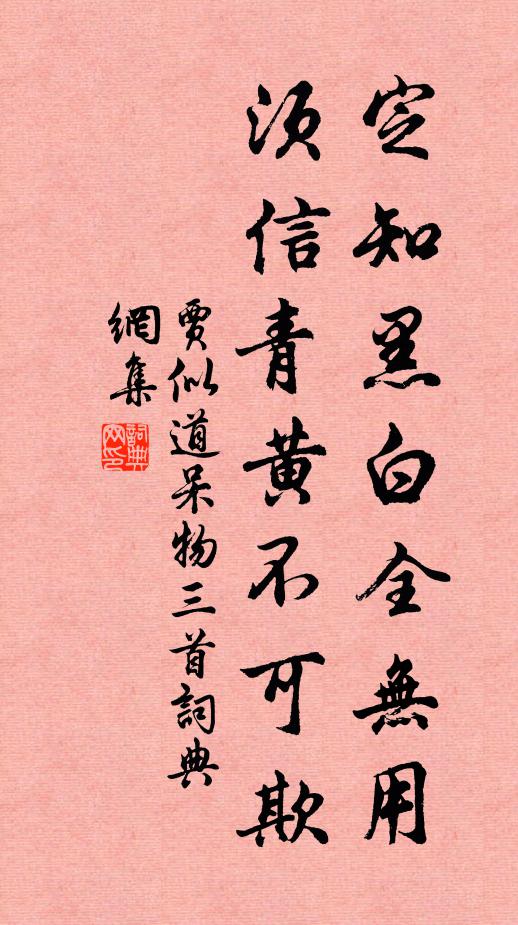 定知黑白全無用
須信青黃不可欺
賈似道呆物三首詞典
網集
詞典網印